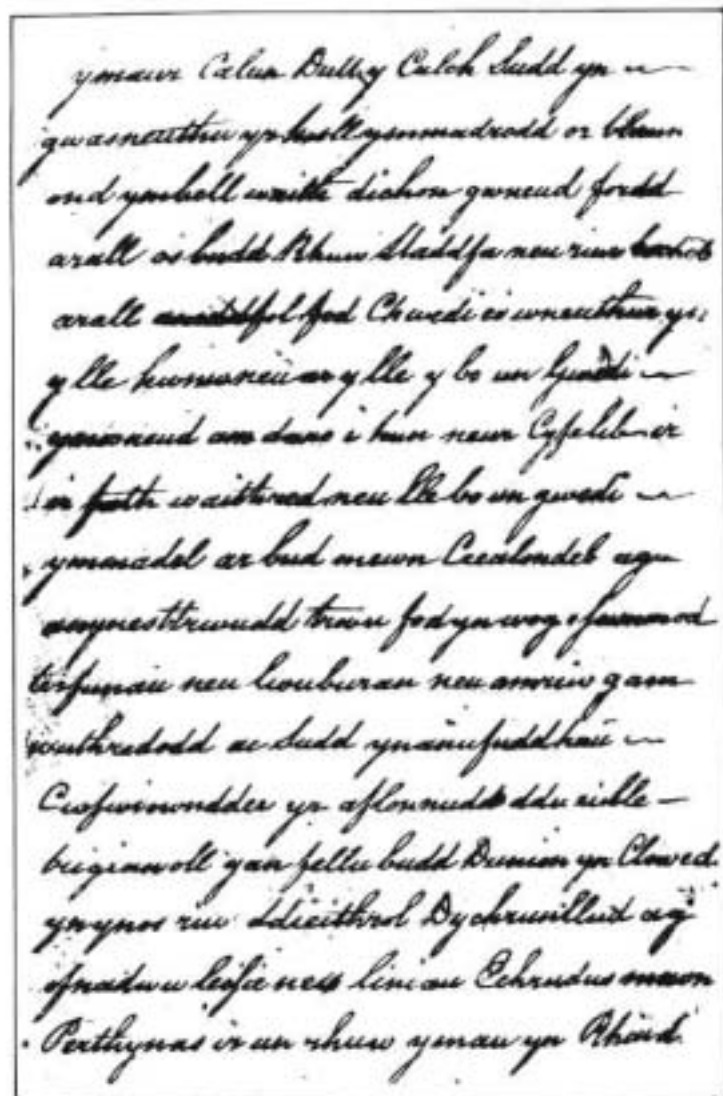 ymaur Calun Dull y Culch Sudd yn
gwasneuthu yr holl ymmadrodd or blaen
ond ymbell waith dichon gwneud fordd
arall os budd Rhuw Laddfa neu riw
arall fod Chwedi ei wneuthur yn
y lle hwnw neu ar y lle y bo un Gwedi
gwneud am dano i hun neur Cyfelib ir
ir fath waithred neu lle bo un gwedi
ymmadel ar bud mewn Crealondeb ag
trwu fod yn wog o
terfunau neu lwuburau neu amriw gam
wuthredodd ac Sudd ynanufuddhau
yr aflonnudd ddu eible
trigianoll gan fellu budd Dunion yn Clowed
yn ynos riw ddieithrol Dychrunllud ag
ofnadwu leisie neu liniau Echrudus mewn
Perthynas ir un rhuw ymau yn Rhaid